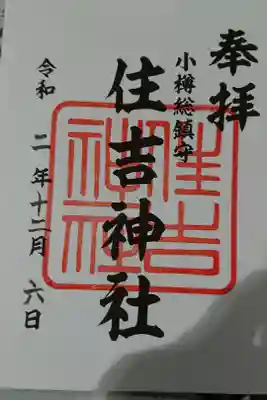 奉拝
小樽総鎮守
住吉神社
住吉神社
令和 二年十二月 六日